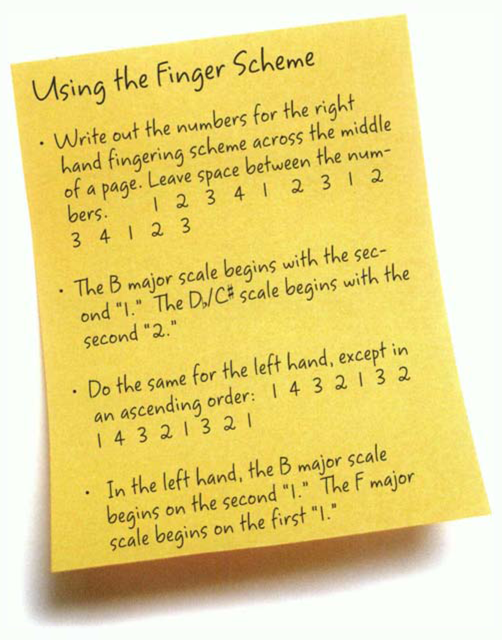 Using the Finger Scheme
• Write out the numbers for the right
hand fingering scheme across the middle
of a page. Leave space between the num-
bers. 1 2 3 4 1 2 3 1 2
3 4 1 2 3
• The B major scale begins with the sec-
ond "1." The D♭/C# scale begins with the
second "2."
• Do the same for the left hand, except in
an ascending order: 1 4 3 2 1 3 2
1 4 3 2 1 3 2 1
• In the left hand, the B major scale
begins on the second "1." The F major
scale begins on the first "1."